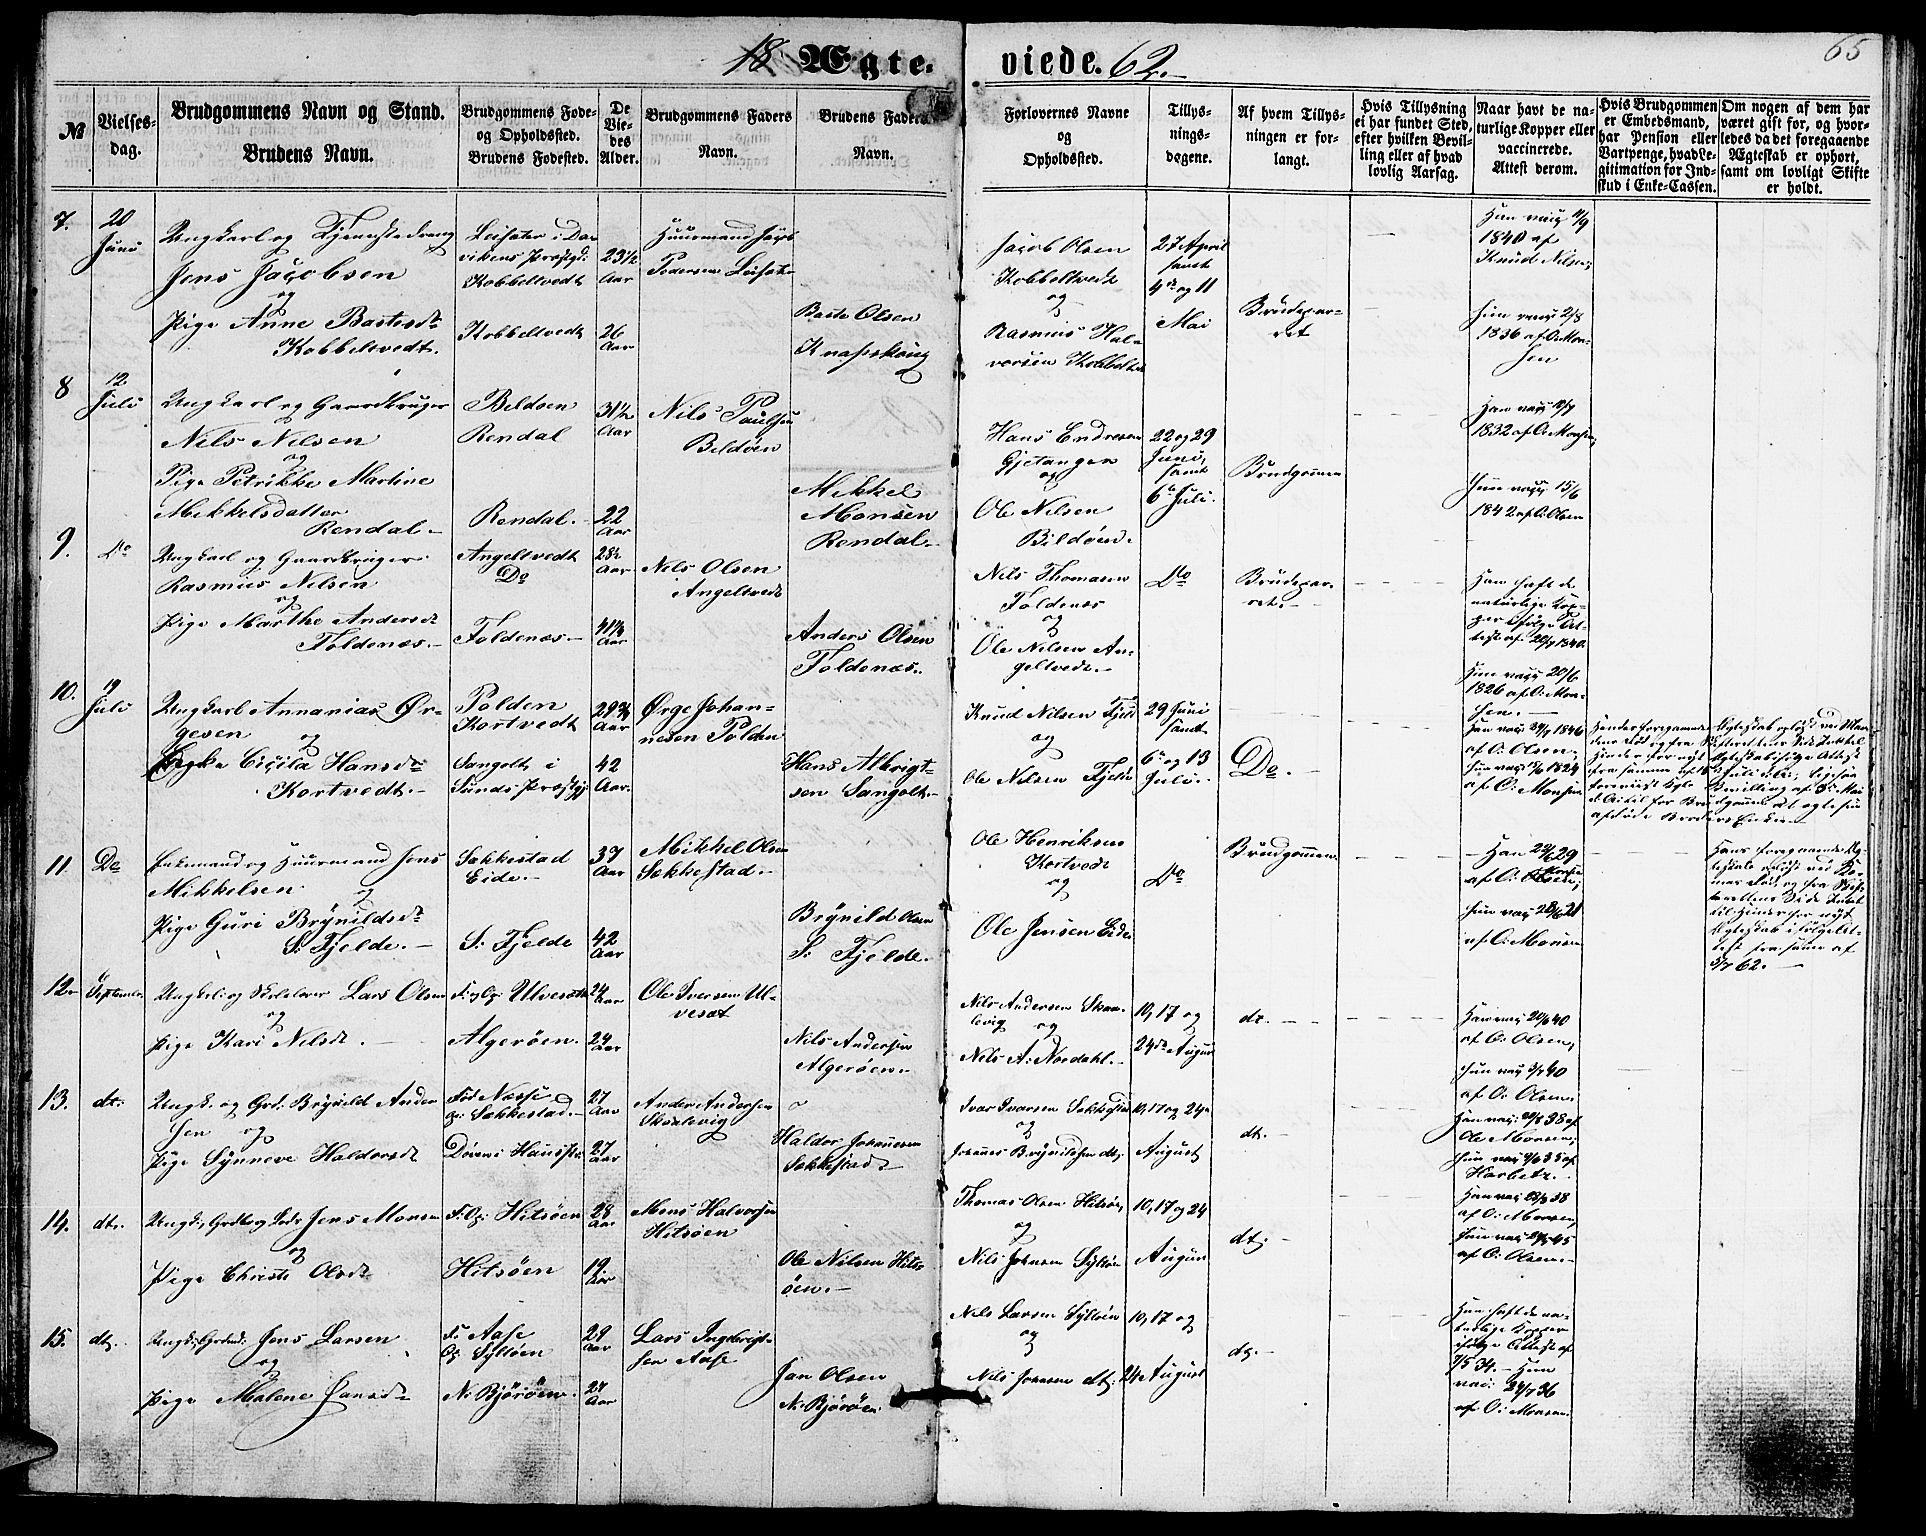 18 Ægte-
viede. 62.
65
№
Vielses-
dag.
Brudgommens Navn og Stand.
Brudens Navn.
Brudgommens Føde-
og Opholdssted.
Brudens Fødested.
De
Vie-
des
Alder.
Brudgommens Faders
Navn.
Brudens Faders
Navn.
Forlovernes Navne
og
Opholdssted.
Tillys-
nings-
dagene.
Af hvem Tillys-
ningen er for-
langt.
Hvis Tillysning
ei har fundet Sted,
efter hvilken Bevil-
ling eller af hvad
lovlig Aarsag.
Naar havt de na-
turlige Kopper eller
vaccinerede.
Attest derom.
Hvis Brudgommen
er Embedsmand,
har Pension eller
Vartpenge, hvad Le-
gitimation for Ind-
skud i Enke-Cassen.
Om nogen af dem har
været gift før, og hvor-
ledes da det foregaaende
Ægteskab er ophørt,
samt om lovligt Skifte
er holdt.
7.
20
Juni
Ungkarl og Tjenestedreng
Jens Jacobsen
og
Pige Anne Bastesdt
Kobbeltvedt.
Kobbeltvedt
Kobbeltvedt
23½
Aar
26
Aar
Pedersen
Baste Olsen
Knapskoug
Jacob Olsen
Kobbeltvedt
og
Rasmus Hal-
vorsen Kobbeltvedt
27 April
samt
4de og 11
Mai
Brudepar-
ret
Han vacc 11/9
1840 af
Knud Nilsen;
Hun vacc 2/8
1836 af O: Mon-
sen
8
12
Juli
Ungkarl og Gaardbruger
Nils Nilsen
og
Pige Petrikke Martine
Mikkelsdatter
Rendal.
Bildøen
Rendal
Rendal.
31½
Aar
22
Aar
Nils Poulsen
Bildøen
Mikkel
Monsen
Rendal.
Hans Endresen
Gjetangen
og
Ole Nilsen
Bildøen.
22 og 29
Juni,
samt
6te Juli.
Brudgommen
1832 af O. Monsen;
Hun vacc 15/6
1842 af O: Olsen
9.
Do
Ungkarl og Gaardbruger
Rasmus Nilsen
og
Pige Marthe Andersdt
Foldenæs.
Angeltvedt
Do
Foldenæs
28½
Aar
41½
Aar
Nils Olsen
Angeltvedt
Anders Olsen
Foldenæs.
Nils Thomasen
Foldenæs
og
Ole Nilsen An-
geltvedt.
Do
Brudepar-
ret.
Han haft de
naturlige Kop-
per ifølge At-
test af 20/7 1840.
Hun vacc 20/6
1826 af O: Mon-
sen.
10.
19
Juli
Ungkarl Annanias Ør-
gesen og
Enke Cicilia Hansdt
Kortvedt.
Polden
Kortvedt
Sangolt i
Sunds Præstgj
29¾
Aar
42
Aar.
Ørge Johan-
nesen Polden
Hans Albrigt-
sen Sangolt.
Knud Nilsen Fjeld
og
Ole Nilsen Fjelde
29 Juni
samt
6te og 13
Juli.
Do.
af O: Olsen;
af O: Monsen
11
Do
Enkemand og Huusmand Jens
Mikkelsen
og
Pige Guri Brynildsdt
S: Fjelde.
Sekkestad
Eide.
S: Fjelde
39
Aar
42
Aar
Mikkel Olsen
Sekkestad.
Brynild Olsen
S: Fjelde.
Ole Henriksen
Kortvedt
og
Ole Jensen Eide
Do
Brudgommen
Hans foregaaende Æg-
teskab opløst ved Ko-
nens Død, og fra Skif-
terettens Side Intet
til Hinder for nyt
Ægteskab ifølge At-
test fra samme af
5/7 62.
12.
September
Ungkarl og Skolelærer Lars Olsen
og
Pige Kari Nilsdt.
F: og O: Ulvesæt
Algerøen.
24
Aar
24
Aar
Ole Iversen Ul-
vesæt
Nils Andersen
Algerøen.
Nils Andersen Skaa-
levig
og
Nils A: Nordahl.
10, 17 og
24de August
dt.
Han vacc 20/6 40
af O: Olsen;
Hun vacc 3/7 40
af O: Olsen.
13.
dt:
Ungk. og Grd: Brynild Ander
sen og
Pige Synneve Haldorsdt
Sekkestad.
27
Aar
27
Aar
Anders Andersen
Skaalevig
Haldor Johannesen
Sekkestad
Ivar Ivarsen Sekkestad
og
Johannes Brynildsen dt;
10, 17 og 24de
August
dt.
Ole Monsen;
14.
dt.
Jens Monsen
og
Pige Christi Olsdt
F: O: Hitsøen
Hitsøen
28
Aar
19
Aar
Mons Halvorsen
Hitsøen
Ole Nilsen Hits-
øen.
Thomas Olsen Hitsøen,
og
Nils Johnsen Sylløen
10, 17 og 24
August
dt.
af O: Monsen;
af O: Olsen.
15.
dt.
Jens Larsen
og
Pige Malene Jansdt
F: Aase
O: Sylløen
N: Bjørøen.
29
Aar
27
Aar
Lars Ingebrigt-
sen Aase
Jan Olsen
N: Bjørøen
Nils Larsen Sylløen
og
Nils Johnsen dt.
10, 17 og
24 August
dt.
Han haft de na-
turlige Kopper
ifølge Attest af
7/5 34. Hun
vac: 24/7 36
af O: Monsen.